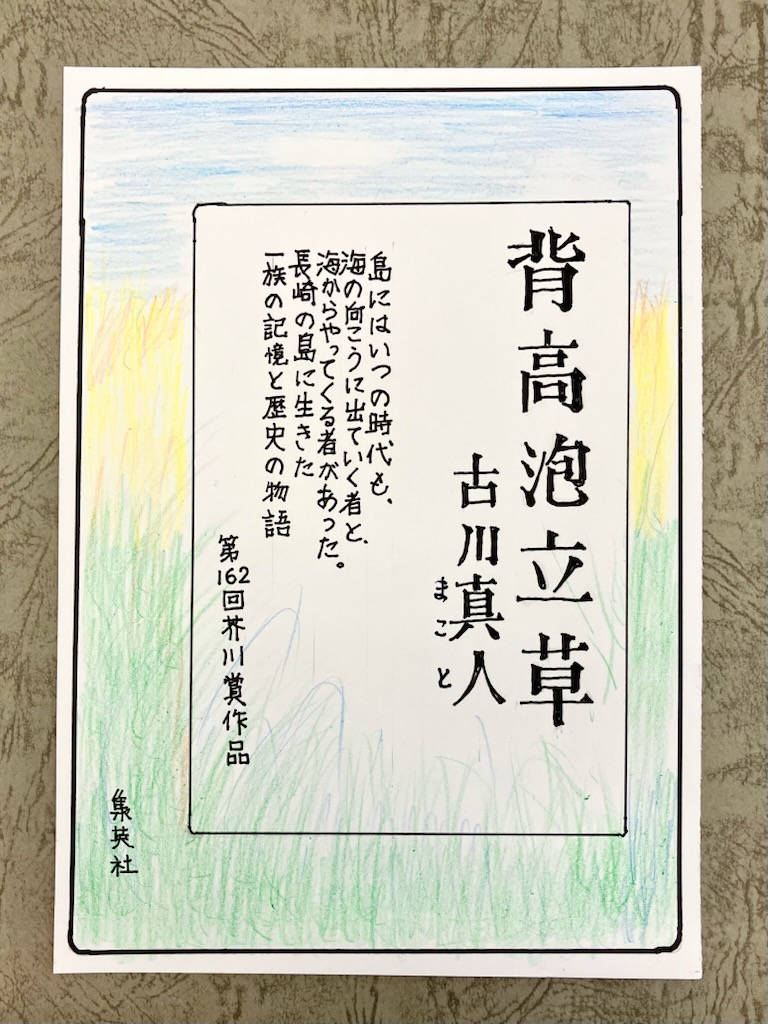 背高泡立草
古川真人
まこと
島にはいつの時代も、
海の向こうに出ていく者と、
海からやってくる者があった。
長崎の島に生きた
一族の記憶と歴史の物語
第162回芥川賞作品
集英社